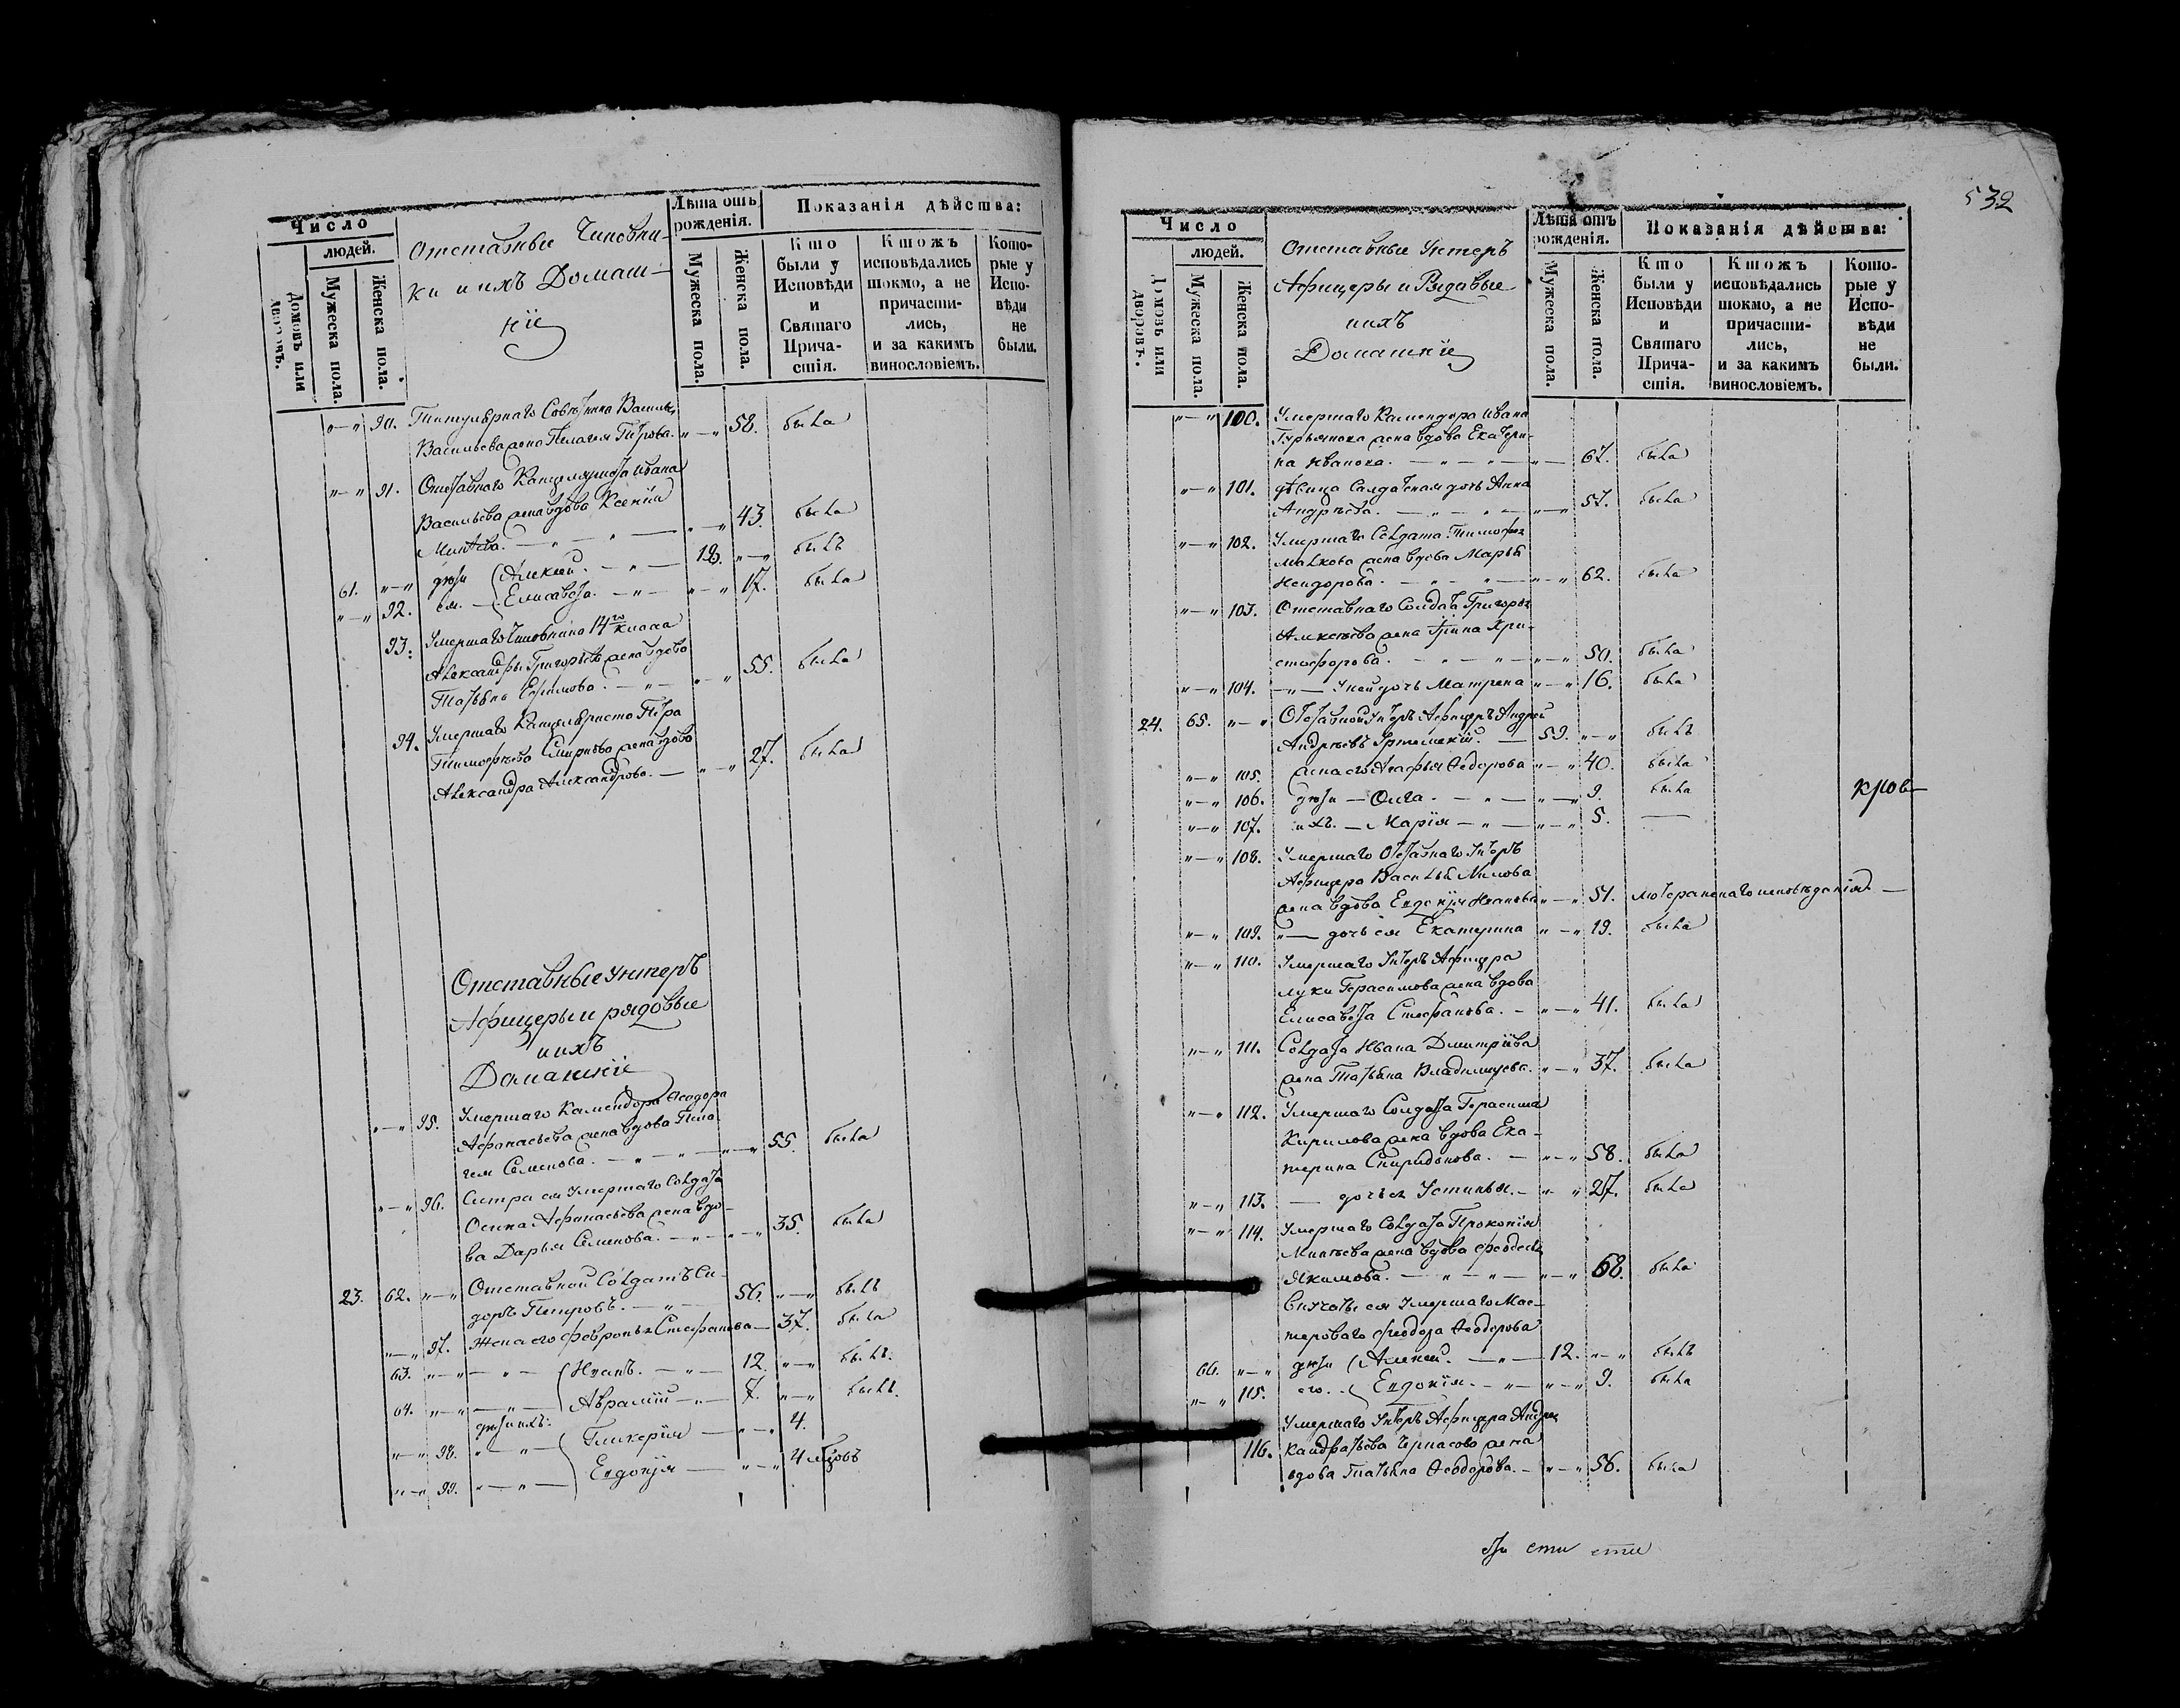 Число
людей.
Домовъ или дворовъ.
Мужеска пола.
Женска пола.
Отставные Чиновни-
ки и ихъ Домаш-
нiе
Лѣта отъ рожденiя.
Мужеска пола.
Женска пола.
Показанiя дѣйства:
Кто были у Исповѣди и Святаго Прича-стiя.
Ктожъ исповѣдались токмо, а не причасти-лись, и за какимъ винословiемъ.
Кото-рые у Испо-вѣди не были.
"—" 90. Титулярнаго Совѣтника
Васильева жена Пелагея Петрова. "—" 58. была
"—" 91. Отставнаго Канцеляриста Ивана
Васильева жена вдова Ксенiя
"—" 43. была
61. "—" дѣти Алексѣй. —"— 18. "—" былъ
"—" 92. ея. — Елисавета. —"— "—" 17. была
93. Умершаго Чиновника 14го класса
Александры Григорьева жена вдова
Татьяна Ефимова. —"— "—" 55. была
94. Умершаго Канцеляриста Петра
Тимофѣева Смирнова жена вдова
Александра Александрова. — "—" 27. была
Отставные Унтеръ
Афицеры и рядовые
и ихъ
Домашнiе
"—" 95. Умершаго Камендора Ѳеодора
Афанасьева жена вдова Пела-
гея Семенова. —"—"— "—" 55. была
"—" 96. Сестра ея умершаго Солдата
Осипа Афанасьева жена вдо-
ва Дарья Семенова. —"— "—" 35. была
23. 62. "—" Отставной Солдатъ Си-
доръ Петровъ. —"— 56. "—" былъ
"—" 97. Жена его Февронья Стефанова — 37. была
63. "—" —"— Иванъ. —"— 12. "—" былъ.
64. "—" —"— Аврамiй —"— 7. "—" былъ.
дѣти ихъ:
"—" 98. "—" Гликерiя — "—" 4.
"—" 99. "—"— Евдокiя — "—" 4 мѣсяцовъ
532
Число
людей.
Домовъ или дворовъ.
Мужеска пола.
Женска пола.
Отставные Унтеръ
Афицеры и Рядовые
и ихъ
Домашнiе
Лѣта отъ рожденiя.
Мужеска пола.
Женска пола.
Показанiя дѣйства:
Кто были у Исповѣди и Святаго Прича-стiя.
Ктожъ исповѣдались токмо, а не причасти-лись, и за какимъ винословiемъ.
Кото-рые у Испо-вѣди не были.
"—" 100. Умершаго Камендора Ивана
жена вдова Екатери-
на Иванова. —"—"— "— 67. была
"—" 101. Дѣвица Салдатская дочь Анна
Андрѣева. —"—"— "—" 57. была
"—" 102. Умершаго Солдата Тимофея
жена вдова Марья
—"—"— "—" 62. была
"—" 103. Отставнаго Солдата Григорья
Алексѣева жена Ирина Хри-
стофорова. —"—"— "—" 50. была
"—" 104. —"— У ней дочь Матрена "—" 16. была
24. 65. "—" Отставной Унтеръ Афицеръ Андрей
Андрѣевъ — 59. "—" былъ
"—" 105. жена его Агафья Ѳедорова "—" 40. была
"—" 106. дѣти — Олга. —"— "—" 9. была
"—" 107. ихъ. — Марiя —"— "—" 5. —
"—" 108. Умершаго Отставнаго Унтеръ
Афицера Василья
жена вдова Евдокiя Иванова "—" 51. лютеранскаго исповѣданiя —
"—" 109. "— дочь ея Екатерина "—" 19. была
"—" 110. Умершаго Унтеръ Афицера
Луки Герасимова жена вдова
Елисавета Стефанова. — "—" 41. была
"—" 111. Солдата Ивана Дмитрiева
жена Татьяна Владимирова. "—" 37. была
"—" 112. Умершаго Солдата Герасима
Кирилова жена вдова Ека-
терина Спиридонова. — "—" 58. была
"—" 113. — дочь ея Устинья. — "—" 27. была
"—" 114. Умершаго Солдата Прокопiя
жена вдова Феодосья
Якимова. —"—"— "—" 68. была
Внучаты ея умершаго Мас-
тероваго Феодора Ѳеодорова
66. "—" дѣти Алексѣй. —"— 12. "—" былъ
"—" 115. его. — Евдокiя. —"— "—" 9. была
Умершаго Унтеръ Афицера Андрея
116. Кандратьева жена
вдова Татьяна Ѳеодорова. — "—" 56. была